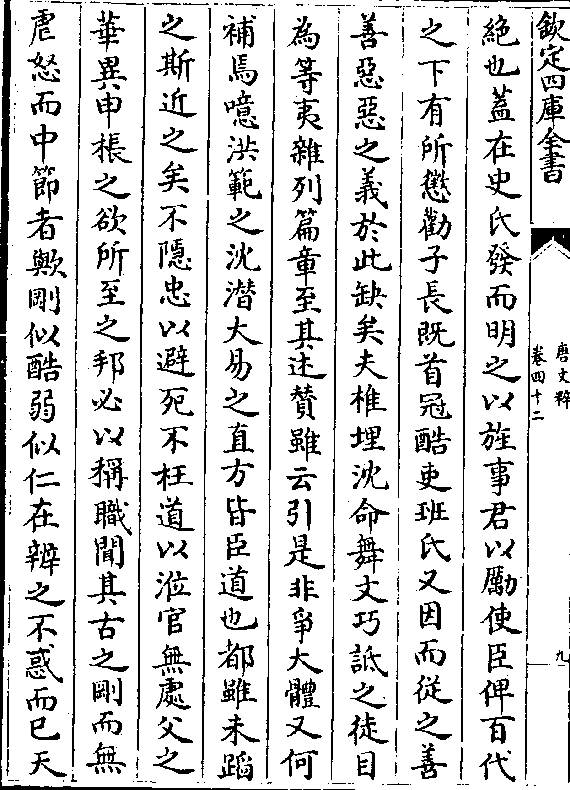 欽定四庫全書
唐文粹
卷四十二
九
絶也蓋在史氏發而明之以旌事君以勵使臣俾百代
之下有所懲勸子長既首冠酷吏班氏又因而從之善
善惡惡之義於此缺矣夫椎埋沈命舞文巧詆之徒目
為等夷雜列篇章至其述贊雖云引是非爭大體又何
補焉噫洪範之沈潛大易之直方皆臣道也都雖未蹈
之斯近之矣不隱忠以避死不枉道以涖官無處父之
華異申棖之欲所至之邦必以稱職聞其古之剛而無
虐怒而中節者歟剛似酷弱似仁在辨之不惑而已天